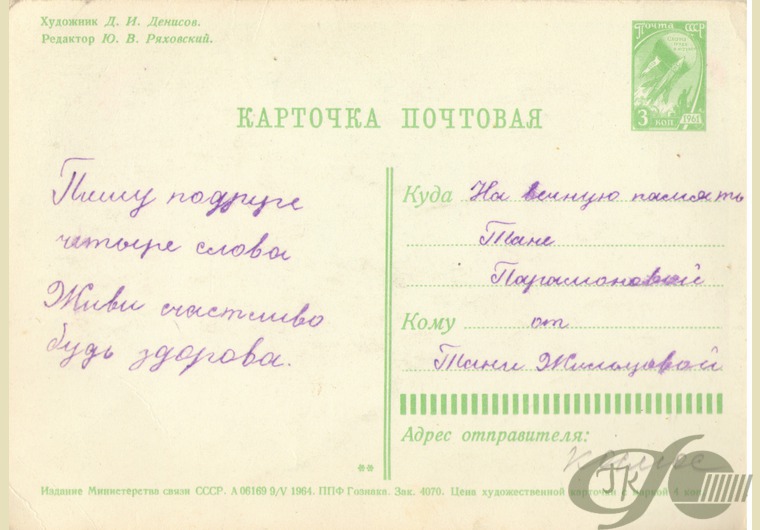 Художник Д. И. Денисов.
Редактор Ю. В. Ряховский.
ПОЧТА СССР
3 коп 1961
КАРТОЧКА ПОЧТОВАЯ
Пишу подруге
четыре слова
Живи счастливо
будь здорова.
Куда На вечную память
Тане
Парамоновой
Кому от
Тани Жильцовой
Адрес отправителя:
**
Издание Министерства связи СССР. А 06169 9/V 1964. ППФ Гознака. Зак. 4070. Цена художественной карточки с маркой 4 коп